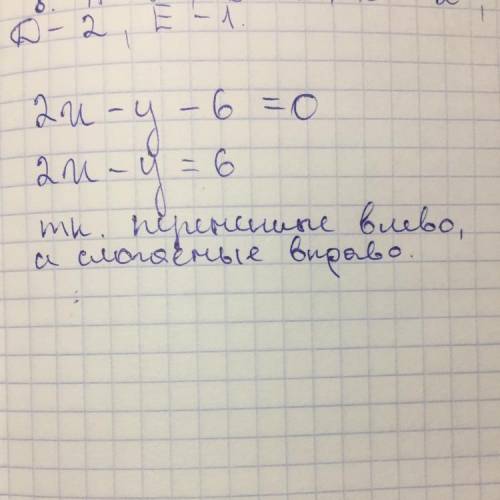 D – 2, E – 1.
2x – y – 6 = 0
2x – y = 6
тк. переменные влево,
а слогаемые вправо.